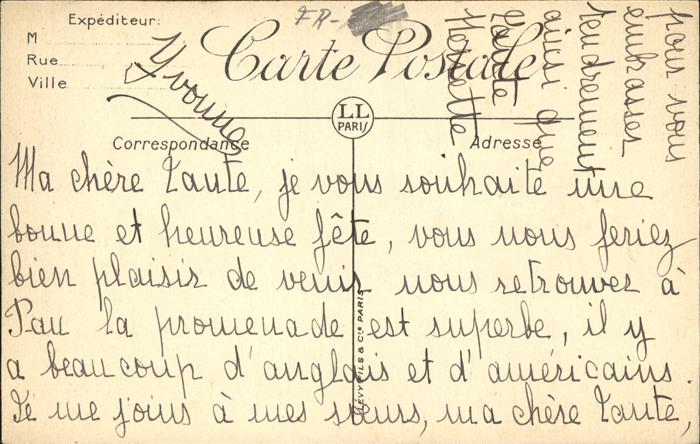 Expéditeur:
M
Rue
Ville
FR-
Carte Postale
LL
PARIS
Correspondance
Adresse
LÉVY FILS & Cie PARIS
Ma chère Tante, je vous souhaite une
bonne et heureuse fête, vous nous feriez
bien plaisir de venir nous retrouver à
Pau la promenade est superbe, il y
a beaucoup d'anglais et d'américains.
Je me joins à mes sœurs, ma chère Tante,
pour vous
embrasser
tendrement
ainsi que
Tante
Henriette
Yvonne